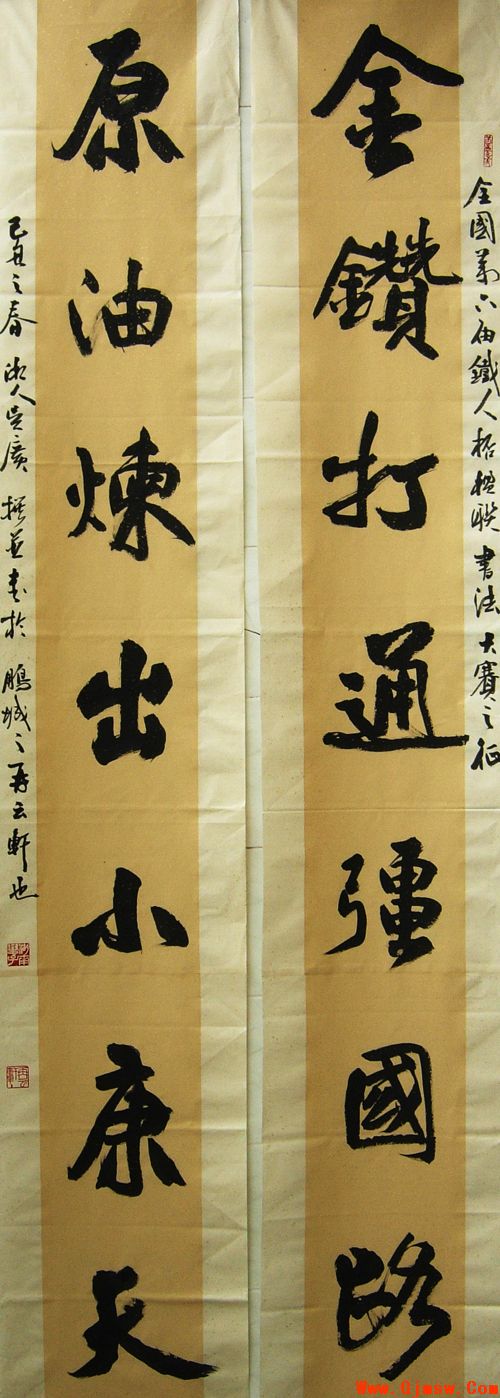 全國第六届鐵人杯楹聯書法大賽之征
金鑽打通彊國路
原油煉出小康天
己丑之春湘人吳廣撰並書於鵬城之再云軒也